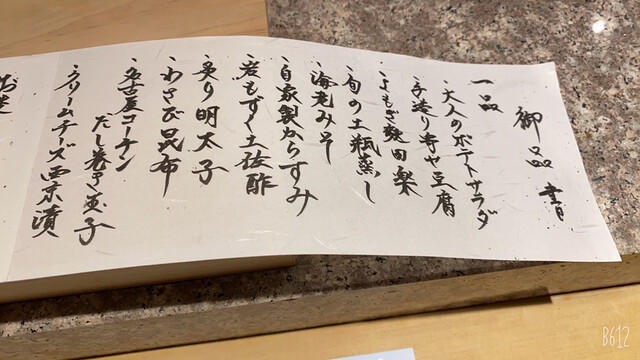 御品書
一品
・大人のポテトサラダ
・手造り寄せ豆腐
・よもぎ麸田楽
・旬の土瓶蒸し
・海老みそ
・自家製からすみ
・岩もずく土佐酢
・炙り明太子
・わさび昆布
・名古屋コーチン
だし巻き玉子
・クリームチーズ西京漬
B612